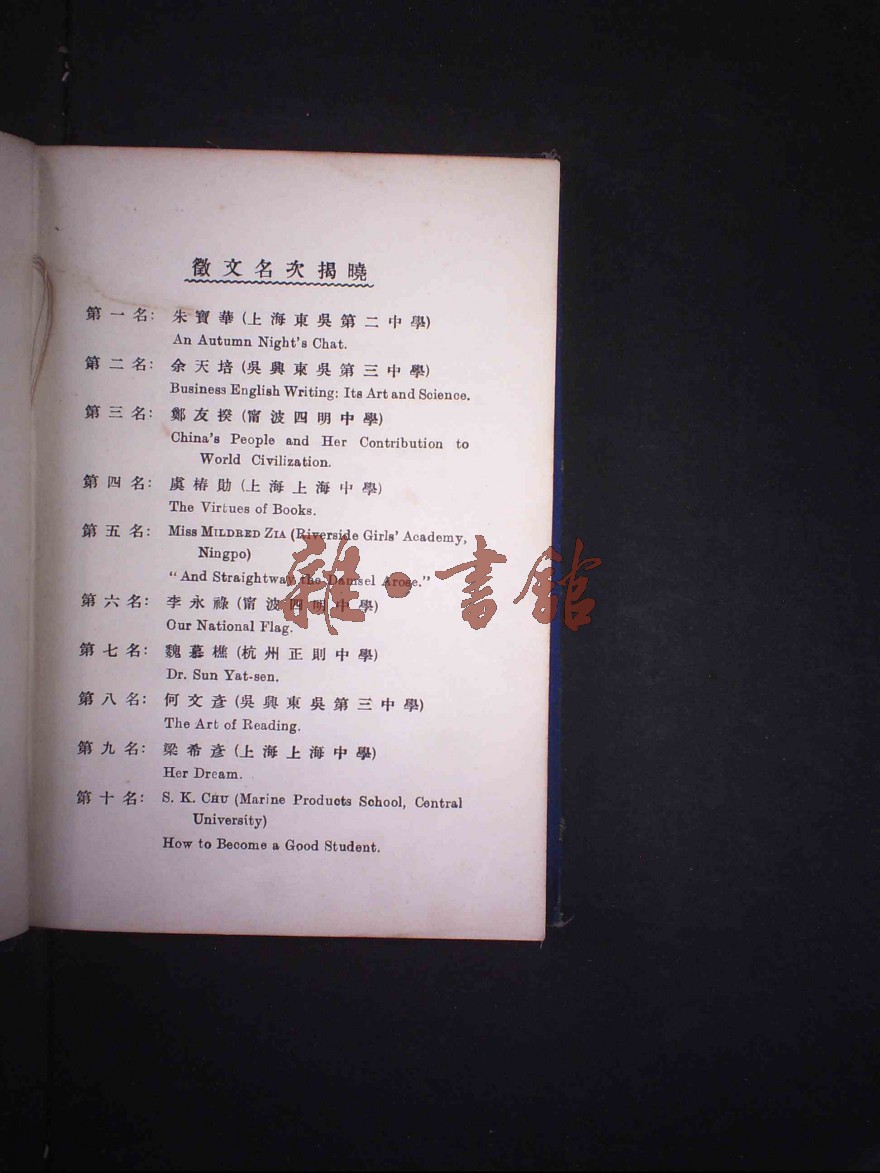 徵文名次揭曉
第一名: 朱寶華(上海東吳第二中學)
An Autumn Night's Chat.
第二名: 余天培(吳興東吳第三中學)
Business English Writing: Its Art and Science.
第三名: 鄭友揆(甯波四明中學)
China's People and Her Contribution to
World Civilization.
第四名: 虞椿勛(上海上海中學)
The Virtues of Books.
第五名: Miss MILDRED ZIA (Riverside Girls' Academy,
Ningpo)
"And Straightway the Damsel Arose."
第六名: 李永祿(甯波四明中學)
Our National Flag.
第七名: 魏慕樵(杭州正則中學)
Dr. Sun Yat-sen.
第八名: 何文彥(吳興東吳第三中學)
The Art of Reading.
第九名: 梁希彥(上海上海中學)
Her Dream.
第十名: S. K. CHU (Marine Products School, Central
University)
How to Become a Good Student.
雜·書館